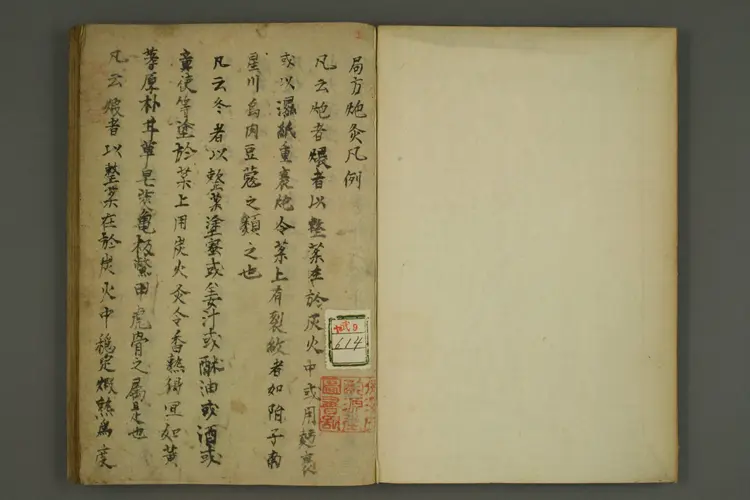 局方炮灸凡例
凡云炮者煨者以整葉在於灰火中或用麺裹
或以濕紙重裹炮令葉上有裂紋者如附子南
星川烏肉豆蔻之類之也
凡云冬者以整葉塗蜜或姜汁或酥油或酒或
童便等塗於葉上用炭火灸令香熟得用如黄
蓍厚朴甘草皂莢龜板鱉甲虎骨之属是也
凡云煅者以整葉在於炭火中穏定煅熟為度
武9
614